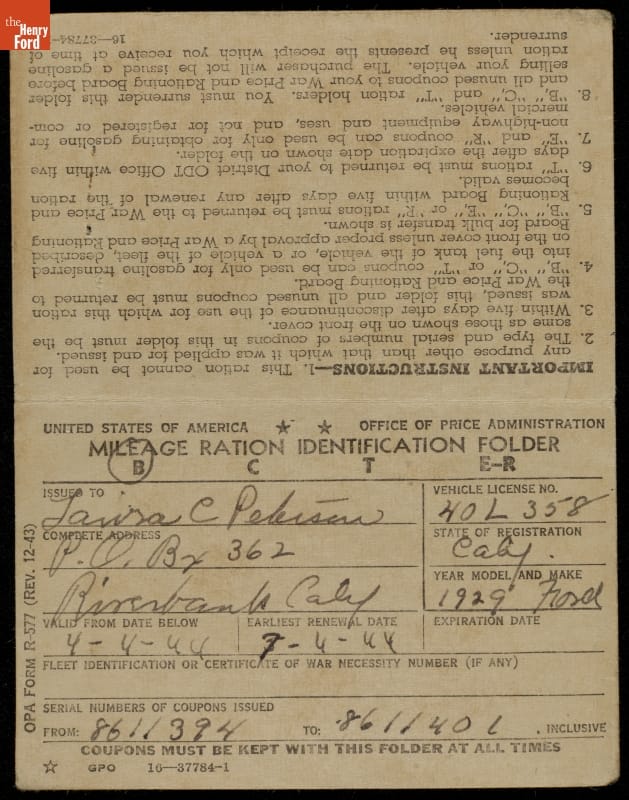 the
Henry
Ford
IMPORTANT INSTRUCTIONS—1. This ration cannot be used for
any purpose other than that which it was applied for and issued.
2. The type and serial numbers of coupons in this folder must be the
same as those shown on the front cover.
3. Within five days after discontinuance of the use for which this ration
was issued, this folder and all unused coupons must be returned to
the War Price and Rationing Board.
4. "B," "C," or "T" coupons can be used only for gasoline transferred
into the fuel tank of the vehicle, or a vehicle of the fleet, described
on the front cover unless proper approval by a War Price and Rationing
Board for bulk transfer is shown.
5. "B," "C," "E," or "R" rations must be returned to the War Price and
Rationing Board within five days after any renewal of the ration
becomes valid.
6. "T" rations must be returned to your District ODT Office within five
days after the expiration date shown on the folder.
7. "E" and "R" coupons can be used only for obtaining gasoline for
non-highway equipment and uses, and not for registered or com-
mercial vehicles.
8. "B," "C," and "T" ration holders. You must surrender this folder
and all unused coupons to your War Price and Rationing Board before
selling your vehicle. The purchaser will not be issued a gasoline
ration unless he presents the receipt which you receive at time of
surrender.
16—37784-1
UNITED STATES OF AMERICA ☆ ☆ OFFICE OF PRICE ADMINISTRATION
MILEAGE RATION IDENTIFICATION FOLDER
B C T E-R
ISSUED TO
Laura C Peterson
VEHICLE LICENSE NO.
40L 358
COMPLETE ADDRESS
P.O. Bx 362
Riverbank Calif
STATE OF REGISTRATION
Calif.
YEAR MODEL AND MAKE
1929 Ford
VALID FROM DATE BELOW
4-4-44
EARLIEST RENEWAL DATE
7-4-44
EXPIRATION DATE
FLEET IDENTIFICATION OR CERTIFICATE OF WAR NECESSITY NUMBER (IF ANY)
SERIAL NUMBERS OF COUPONS ISSUED
FROM: 8611394 TO: 8611401, INCLUSIVE
COUPONS MUST BE KEPT WITH THIS FOLDER AT ALL TIMES
☆ GPO 16—37784-1
OPA FORM R-577 (REV. 12-43)